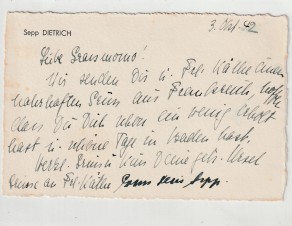 Sepp DIETRICH
3. Okt. 42
Liebe Grossmama!
Wir senden Dir u. Frl. Käthe einen
nahrhaften Gruss aus Frankreich, hoffe
dass Du Dich schon ein wenig erholt
hast u. schöne Tage in Baden hast.
Herzl. Grüsse
Grüsse an Frl. Käthe Sepp.